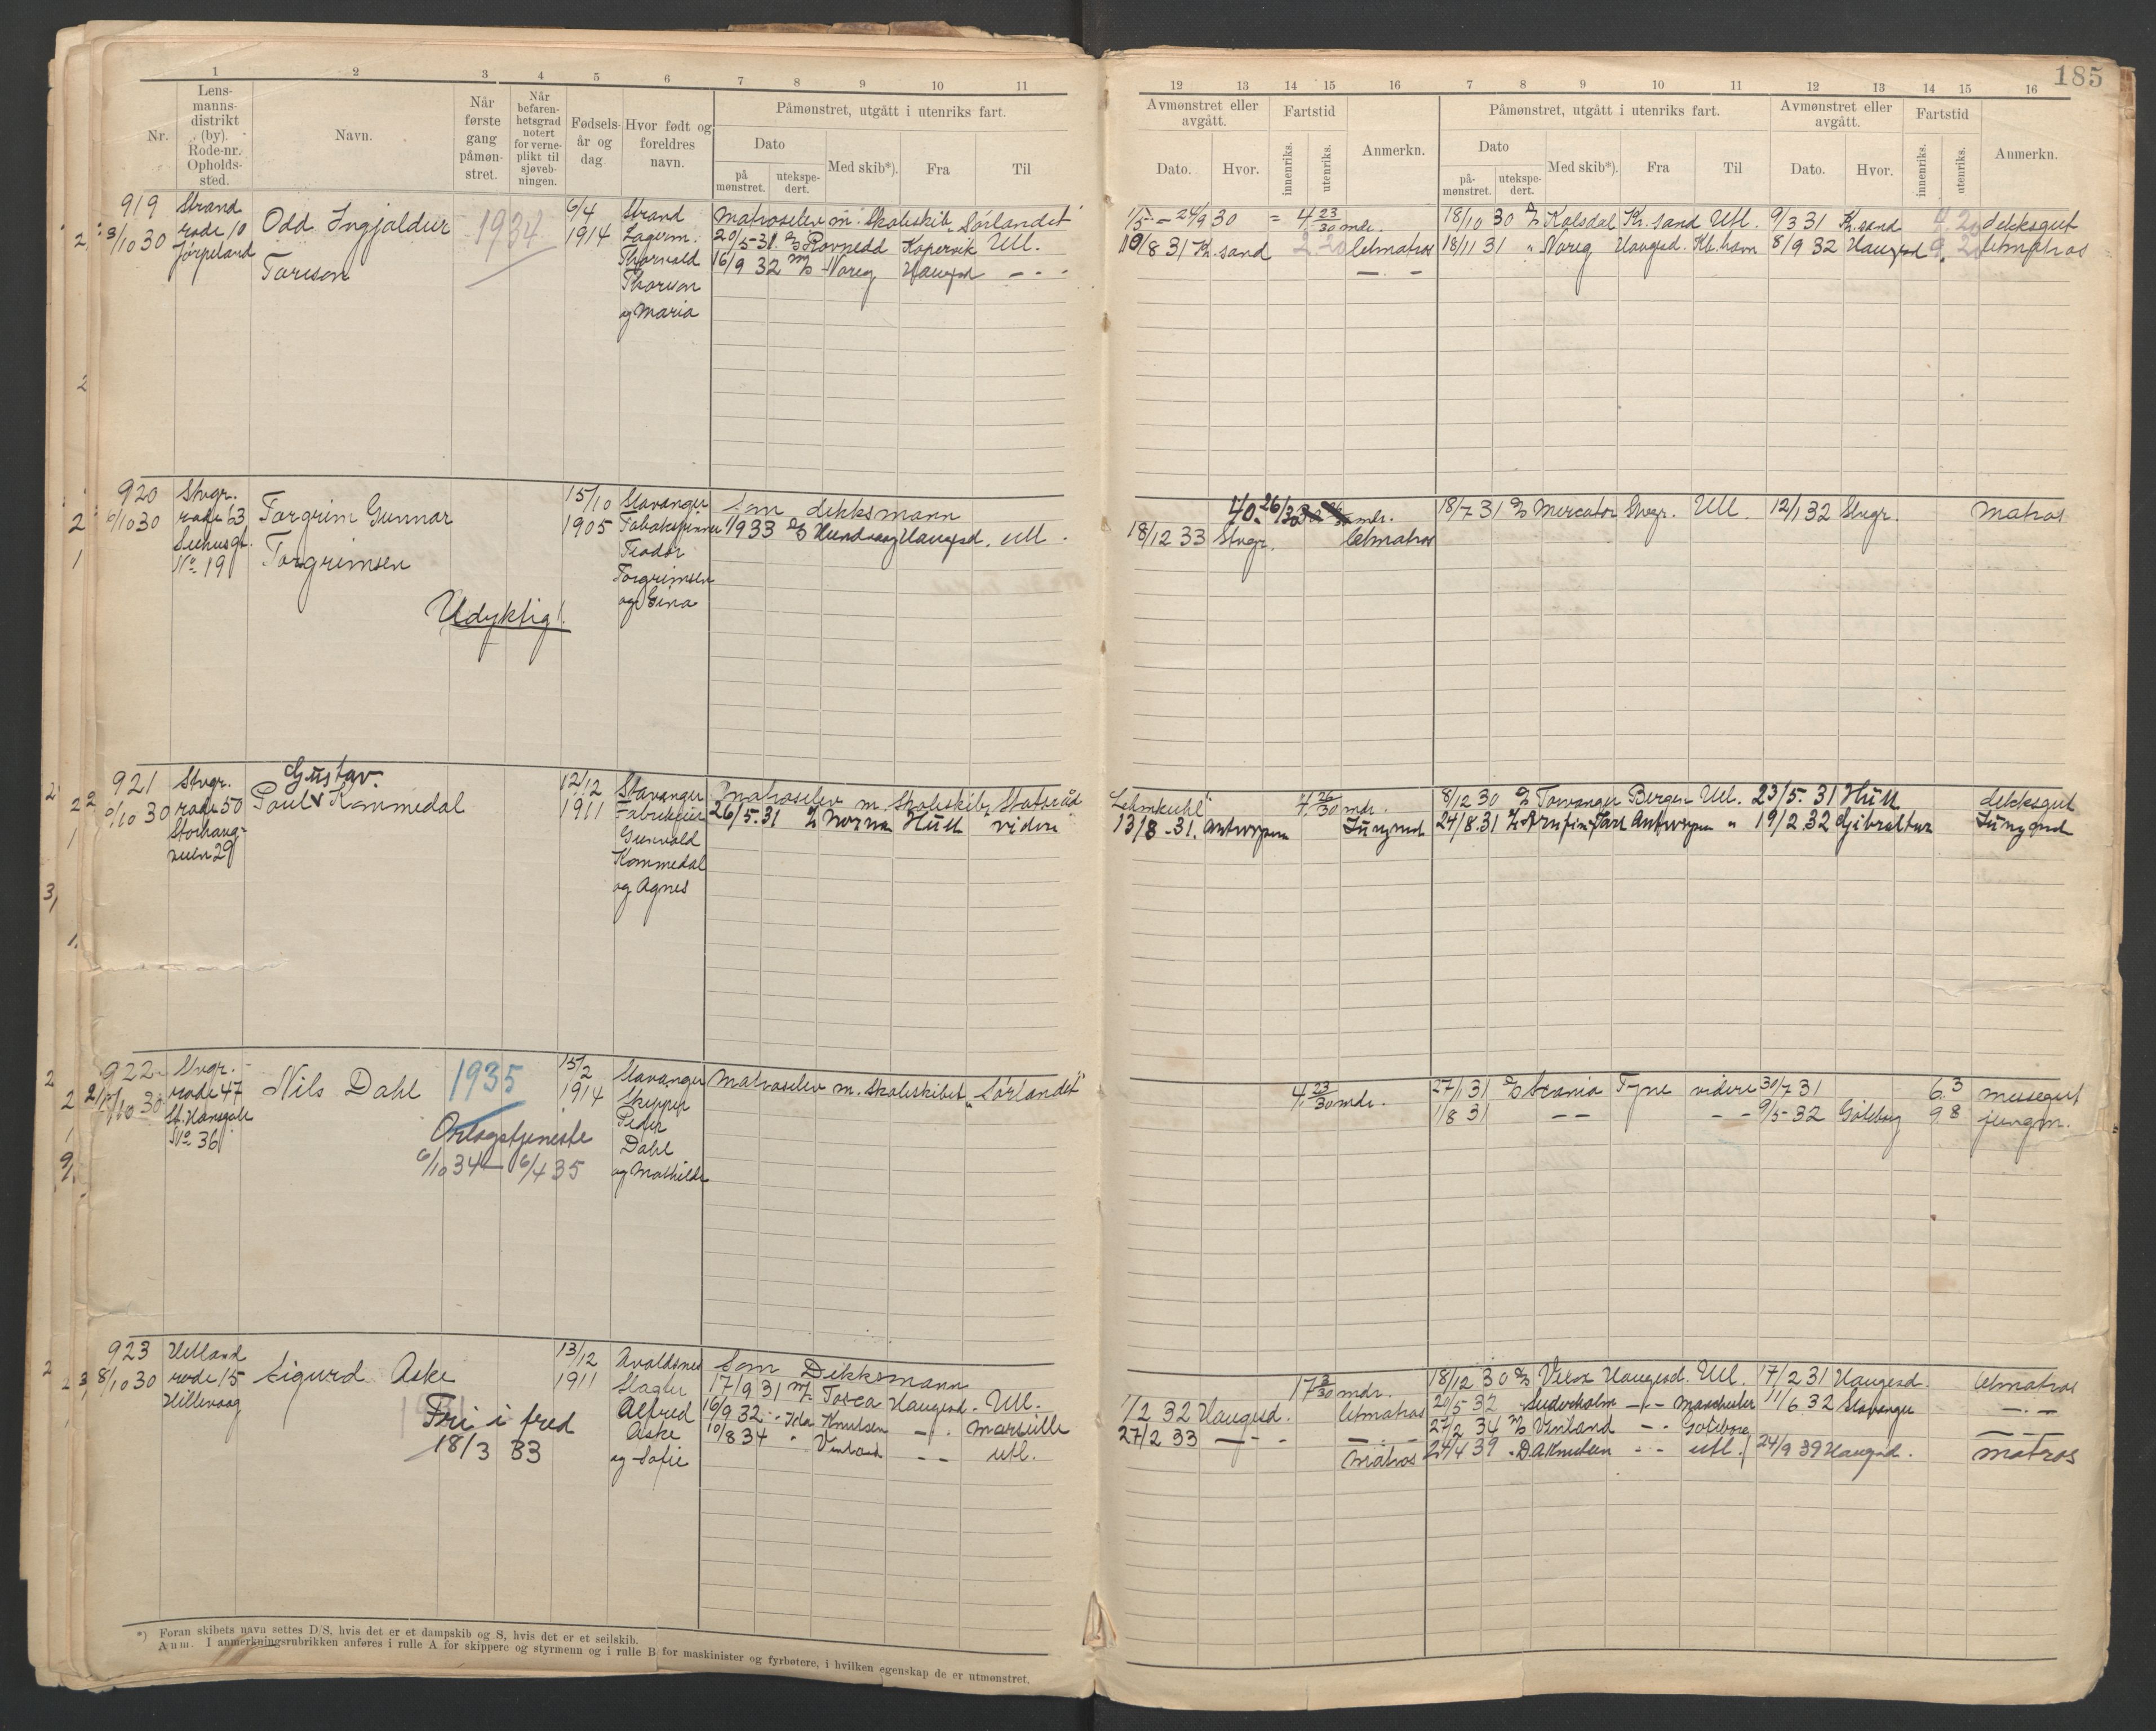 185
1 2 3 4 5 6 7 8 9 10 11
12 13 14 15 16 7 8 9 10 11 12 13 14 15 16
Nr.
Lens-
manns-
distrikt
(by).
Rode-nr.
Opholds-
sted.
Navn.
Når
første
gang
påmøn-
stret.
Når
befaren-
hetsgrad
notert
for verne-
plikt til
sjøveb-
ningen.
Fødsels-
år og
dag.
Hvor født og
foreldres
navn.
Påmønstret, utgått i utenriks fart.
Dato
på
mønstret.
utekspe-
dert.
Med skib*).
Fra
Til
Avmønstret eller
avgått.
Dato.
Hvor.
Fartstid
innenriks.
utenriks.
Anmerkn.
Påmønstret, utgått i utenriks fart.
Dato
på-
mønstret.
utekspe-
dert.
Med skib*).
Fra
Til
Avmønstret eller
avgått.
Dato.
Hvor.
Fartstid
innenriks.
utenriks.
Anmerkn.
919
3/10 30
Strand
rode 10
Jørpeland
Odd Ingjaldur
Torison
1934
6/4
1914
Strand
Lagerm.
Thorvald
Thorison
og Maria
Matroselev m. Skoleskib "Sørlandet"
20/5-31 Rovnedd Kopervik Utl.
16/9 32 Noreg Haugsd — -
1/5 — 24/9 30 = 4 23/30 mdr.
10/8 31 Kr.sand 2 20 letmatros
— . —
18/10 30 Kolsdal Kr.sand Utl. 9/3 31 Kr.sand 4 20 dekksgut
18/11 31 " Noreg Haugsd. Kb.havn 8/9 32 Haugsd 9. 20 letmatros
920
6/10 30
Stvgr.
rode 63
Seehusgt.
No 19
Torgrim Gunnar
Torgrimsen
Udyktig!.
15/10
1905
Stavanger
Teodor
Torgrimsen
og Gina
Som dekksmann
1/9 33 Hundvaag Haugsd. utl.
40. 26/30 mdr.
18/12 33 Stvgr. letmatros
18/7 31 Mercator Stvgr. Utl. 12/1 32 Stvgr. Matros
921
6/10 30
Stvgr.
rode 50
Storhaug-
veien 29
Gustav
Paul v Kommedal
12/12
1911
Stavanger
Fabrikeier
Gunvald
Kommedal
og Agnes
Matroselev m. Skoleskib "Statsråd
26/5.31 Norna Hull videre
Lehmkuhl" 4. 26/30 mdr.
13/8-31. Antwerpen Jungmd
8/12 30 Torvanger Bergen Utl. 23/5. 31 Hull dekksgut
24/8.31 Arnfinn Jarl Antwerpen " 19/2 32 Gibraltar Jungmd
922
Stvgr.
rode 47
St. Hansgate
No 36
Nils Dahl
1935
Orlogstjeneste
6/10 34 — 6/4 35
15/2
1914
Stavanger
Skipper
Peder
Dahl
og Mathilde
Matroselev m. Skoleskibet "Sørlandet"
4. 23/30 mdr.
27/1 31 Tyne videre 30/7 31 6. 3 messegut
1/8 31 — — — — 9/5-32 Gøtebog 9 8 jungm.
923
8/10 30
Hetland
rode 15
Hillevaag
Sigurd Aske
Fri i fred
18/3 33
13/12
1911
Avaldsnes
Slagter
Alfred
Aske
og Sofie
Som Dekksmann
17/9 31 Tosca Haugesd. Utl.
16/9 32 " Ida Knutsen — . Marseille
10/8 34 " Vinland — — utl.
17 3/30 mdr.
1/2 32 Haugesd. letmatros
27/2 33 — - - — . —
Matros
18/12 30 Virox Haugesd. Utl. 17/2 31 Haugesd. letmatros
20/5 32 " Suderholm — - — Manchester 11/6 32 Stavanger — . —
27/2 34 Vinland — - Gøteborg — — —
24/4 39 " D.A.Knutsen - - utl. 24/9 39 Haugsd. matros
*) Foran skibets navn settes D/S, hvis det er et dampskib og S, hvis det er et seilskib.
Anm. I anmerkningsrubrikken anføres i rulle A for skippere og styrmenn og i rulle B for maskinister og fyrbøtere, i hvilken egenskap de er utmønstret.